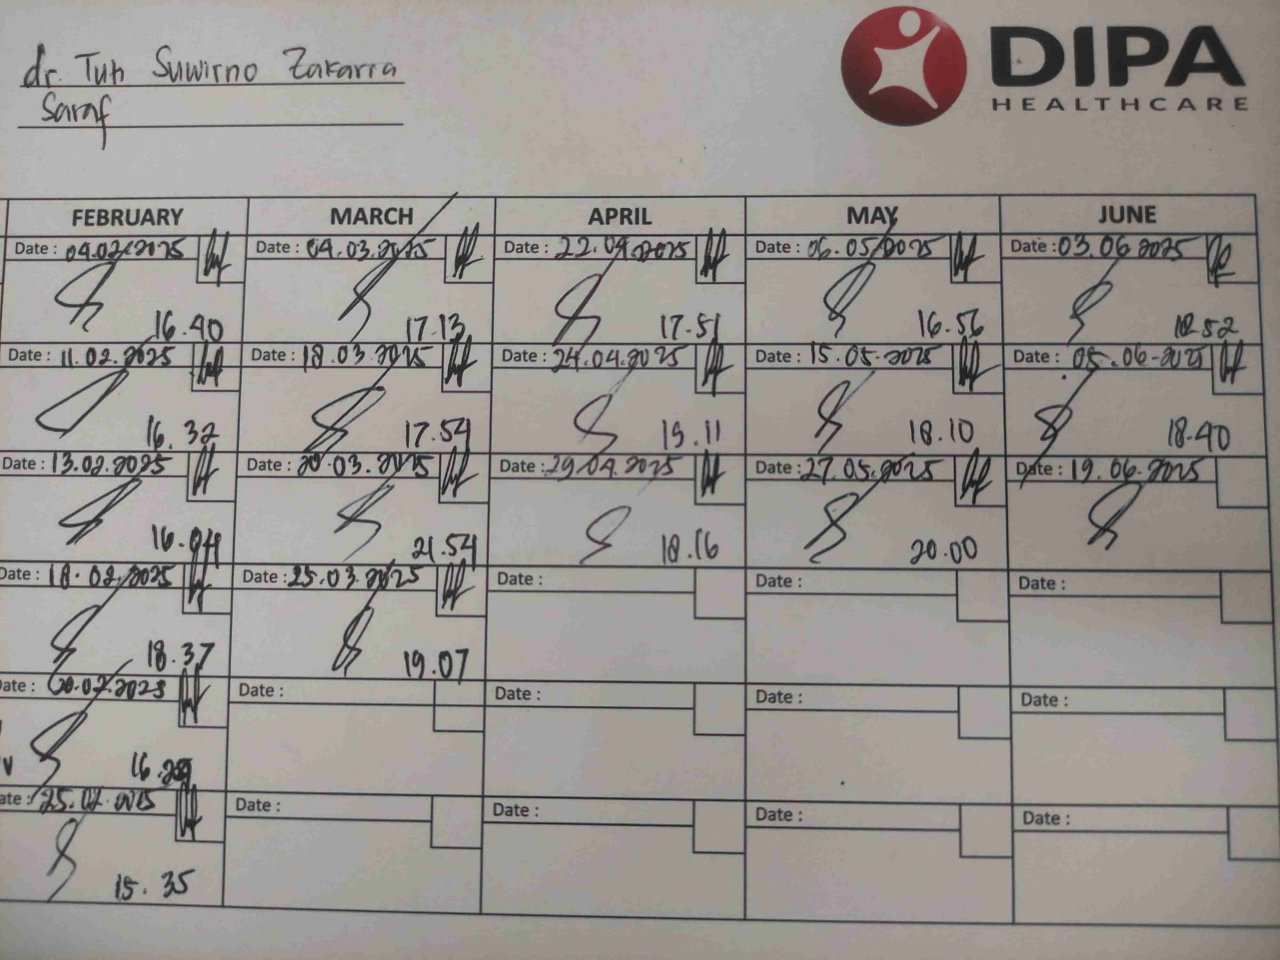 dr. Tuti Suwirno Zakaria
Saraf
DIPA
HEALTHCARE
FEBRUARY MARCH APRIL MAY JUNE
Date : 04.02.2025 Date : 04.03.2025 Date : 22.04.2025 Date : 06.05.2025 Date : 03.06 2025
16.40 17.13 17.51 16.56 18.52
Date : 11.02.2025 Date : 18.03.2025 Date : 24.04.2025 Date : 15.05.2025 Date : 05.06-2025
16.32 17.54 15.11 18.10 18.40
Date : 13.02.2025 Date : 20.03.2025 Date : 29.04.2025 Date : 27.05.2025 Date : 19.06.2025
16.04 21.54 18.16 20.00
Date : 18.02.2025 Date : 25.03.2025 Date : Date : Date :
18.37 19.07
ate : 20.02.2025 Date : Date : Date : Date :
16.29
ate : 25.02.2025 Date : Date : Date : Date :
15.35